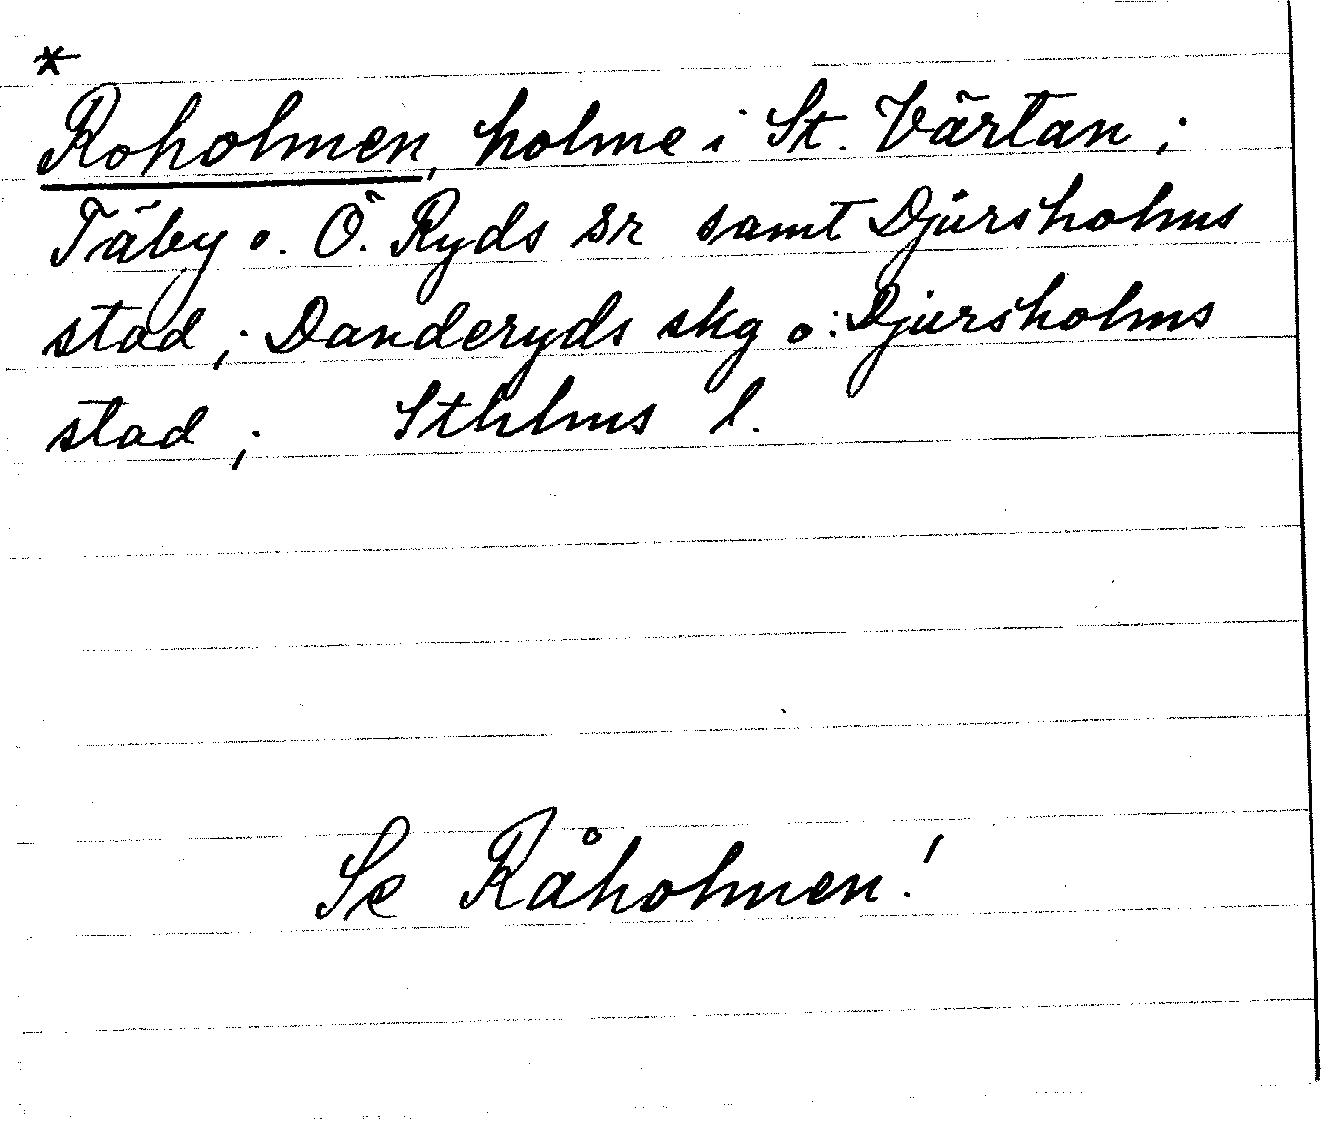 *
Roholmen, holme i St. Värtan;
Täby o. Ö. Ryds sr samt Djursholms
stad; Danderyds skg o. Djursholms
stad; Sthlms l.
Se Råholmen!